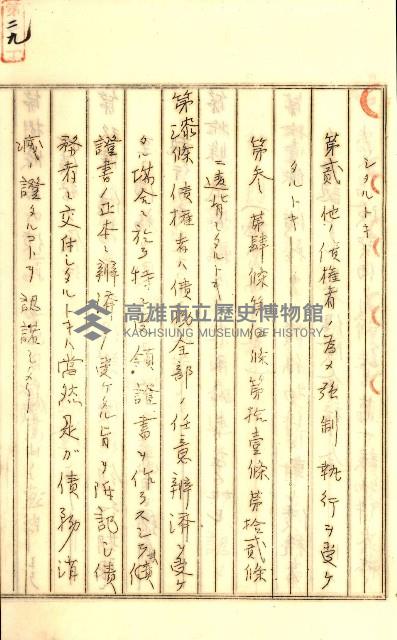 二九
シタルトキ
第貳 他ノ債權者ノ為メ強制執行ヲ受ケ
タルトキ
第參 第肆條 第 條 第拾壹條 第拾貳條
ニ違背シタルトキ
第漆條 債權者ハ債務全部ノ任意辨濟ヲ受ケ
タル場合ニ於テ特ニ受領證書ヲ作ラスシテ債
證書ノ正本ニ辨濟ヲ受ケタル旨ヲ附記シ債
務者ニ交付シタルトキハ當然是ガ債務消
滅ノ證タルコトヲ認諾シタリ
高雄市立歷史博物館
KAOHSIUNG MUSEUM OF HISTORY